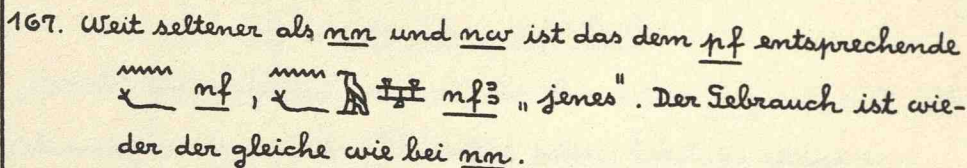 167. Weit seltener als nn und nw ist das dem pf entsprechende
𓈖𓆑 nf, 𓈖𓆑𓄿 nfꜣ „jenes". Der Gebrauch ist wie-
der der gleiche wie bei nn.